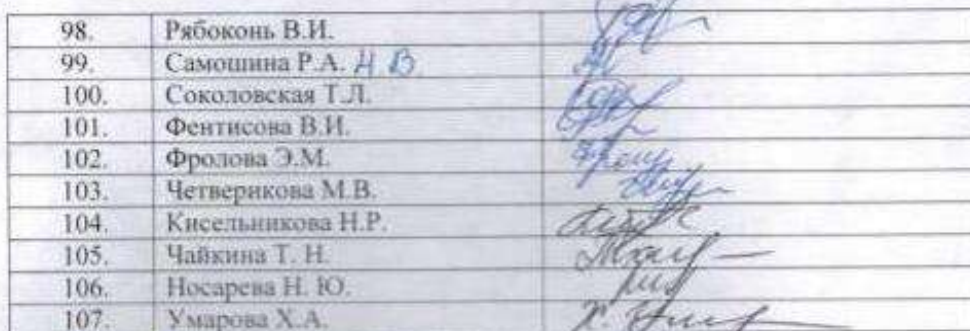 98. Рябоконь В.И.
99. Самошина Р.А. Н В
100. Соколовская Т.Л.
101. Фентисова В.И.
102. Фролова Э.М.
103. Четверикова М.В.
104. Кисельникова Н.Р.
105. Чайкина Т. Н.
106. Носарева Н. Ю.
107. Умарова Х.А.